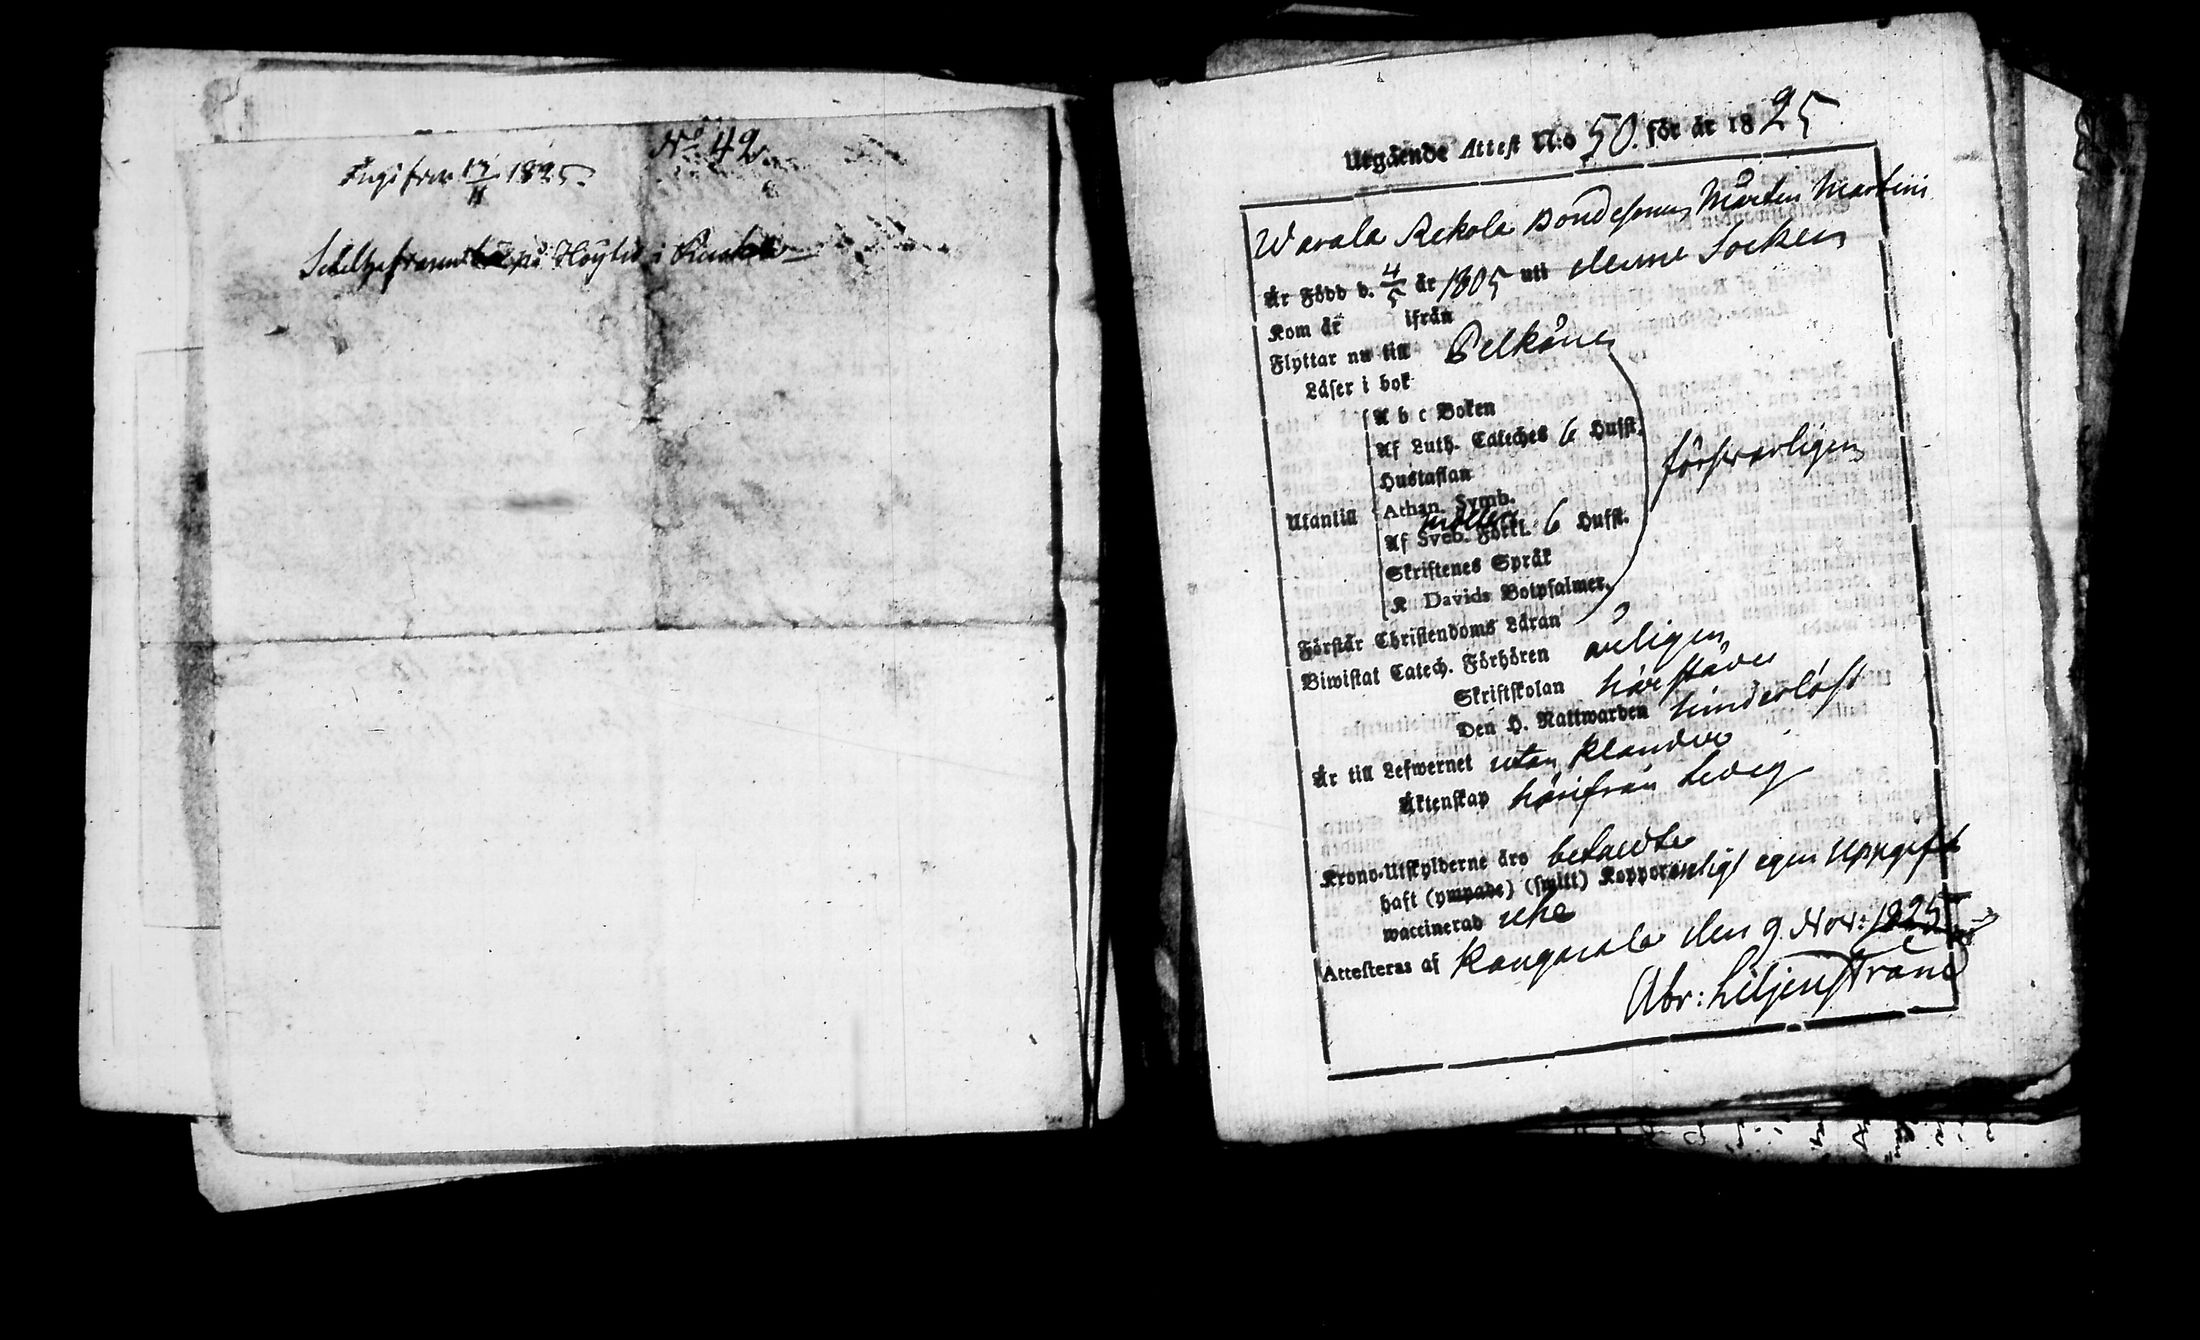 No 42
Ingifven 17/11 1825.
på i
Utgående Attest N:o 50. för år 1825
Warala Rekola Bondesonen Mårten Martini
År Född d. 4/5 år 1805 uti denne Socken
Kom år ifrån
Flyttar nu till Pelkäne
Läser i bok
A b c Boken
Af Luth. Cateches 6 Hufst.
Hustaflan
försvarligen
Utantill
Athan. Symb.
Af Sveb. Förkl. 6 Hufst.
Skriftenes Språk
K Davids Botpsalmer.
Förstår Christendoms Läran
Biwistat Catech. Förhören årligen
Skriftskolan härstädes
Den H. Nattwarden hinderlöst
Är till Lefwernet utan klander
Äktenskap härifrån ledig
Krono-Utskylderne äro betalde
haft (ympade) (smitt) Koppor enligt egen uppgift
waccinerad icke
Attesteras af Kangasala den 9. Nov: 1825
Abr: Liljenstrand